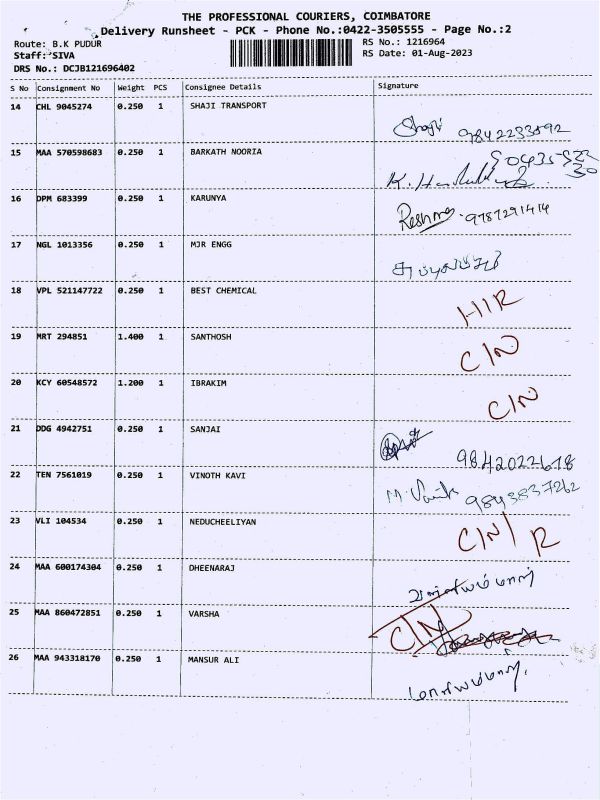 THE PROFESSIONAL COURIERS, COIMBATORE
Delivery Runsheet - PCK - Phone No.:0422-3505555 - Page No.:2
Route: B.K PUDUR RS No.: 1216964
Staff: SIVA RS Date: 01-Aug-2023
DRS No.: DCJB121696402
S No Consignment No Weight PCS Consignee Details Signature
14 CHL 9045274 0.250 1 SHAJI TRANSPORT
Shaji 9842233592
15 MAA 570598683 0.250 1 BARKATH NOORIA
16 DPM 683399 0.250 1 KARUNYA
Reshma 9787291414
17 NGL 1013356 0.250 1 MJR ENGG
18 VPL 521147722 0.250 1 BEST CHEMICAL
HIR
19 MRT 294851 1.400 1 SANTHOSH
C/N
20 KCY 60548572 1.200 1 IBRAKIM
C/N
21 DDG 4942751 0.250 1 SANJAI
9842022678
22 TEN 7561019 0.250 1 VINOTH KAVI
9843837262
23 VLI 104534 0.250 1 NEDUCHEELIYAN
C/N/R
24 MAA 600174304 0.250 1 DHEENARAJ
25 MAA 860472851 0.250 1 VARSHA
C/N
26 MAA 943318170 0.250 1 MANSUR ALI